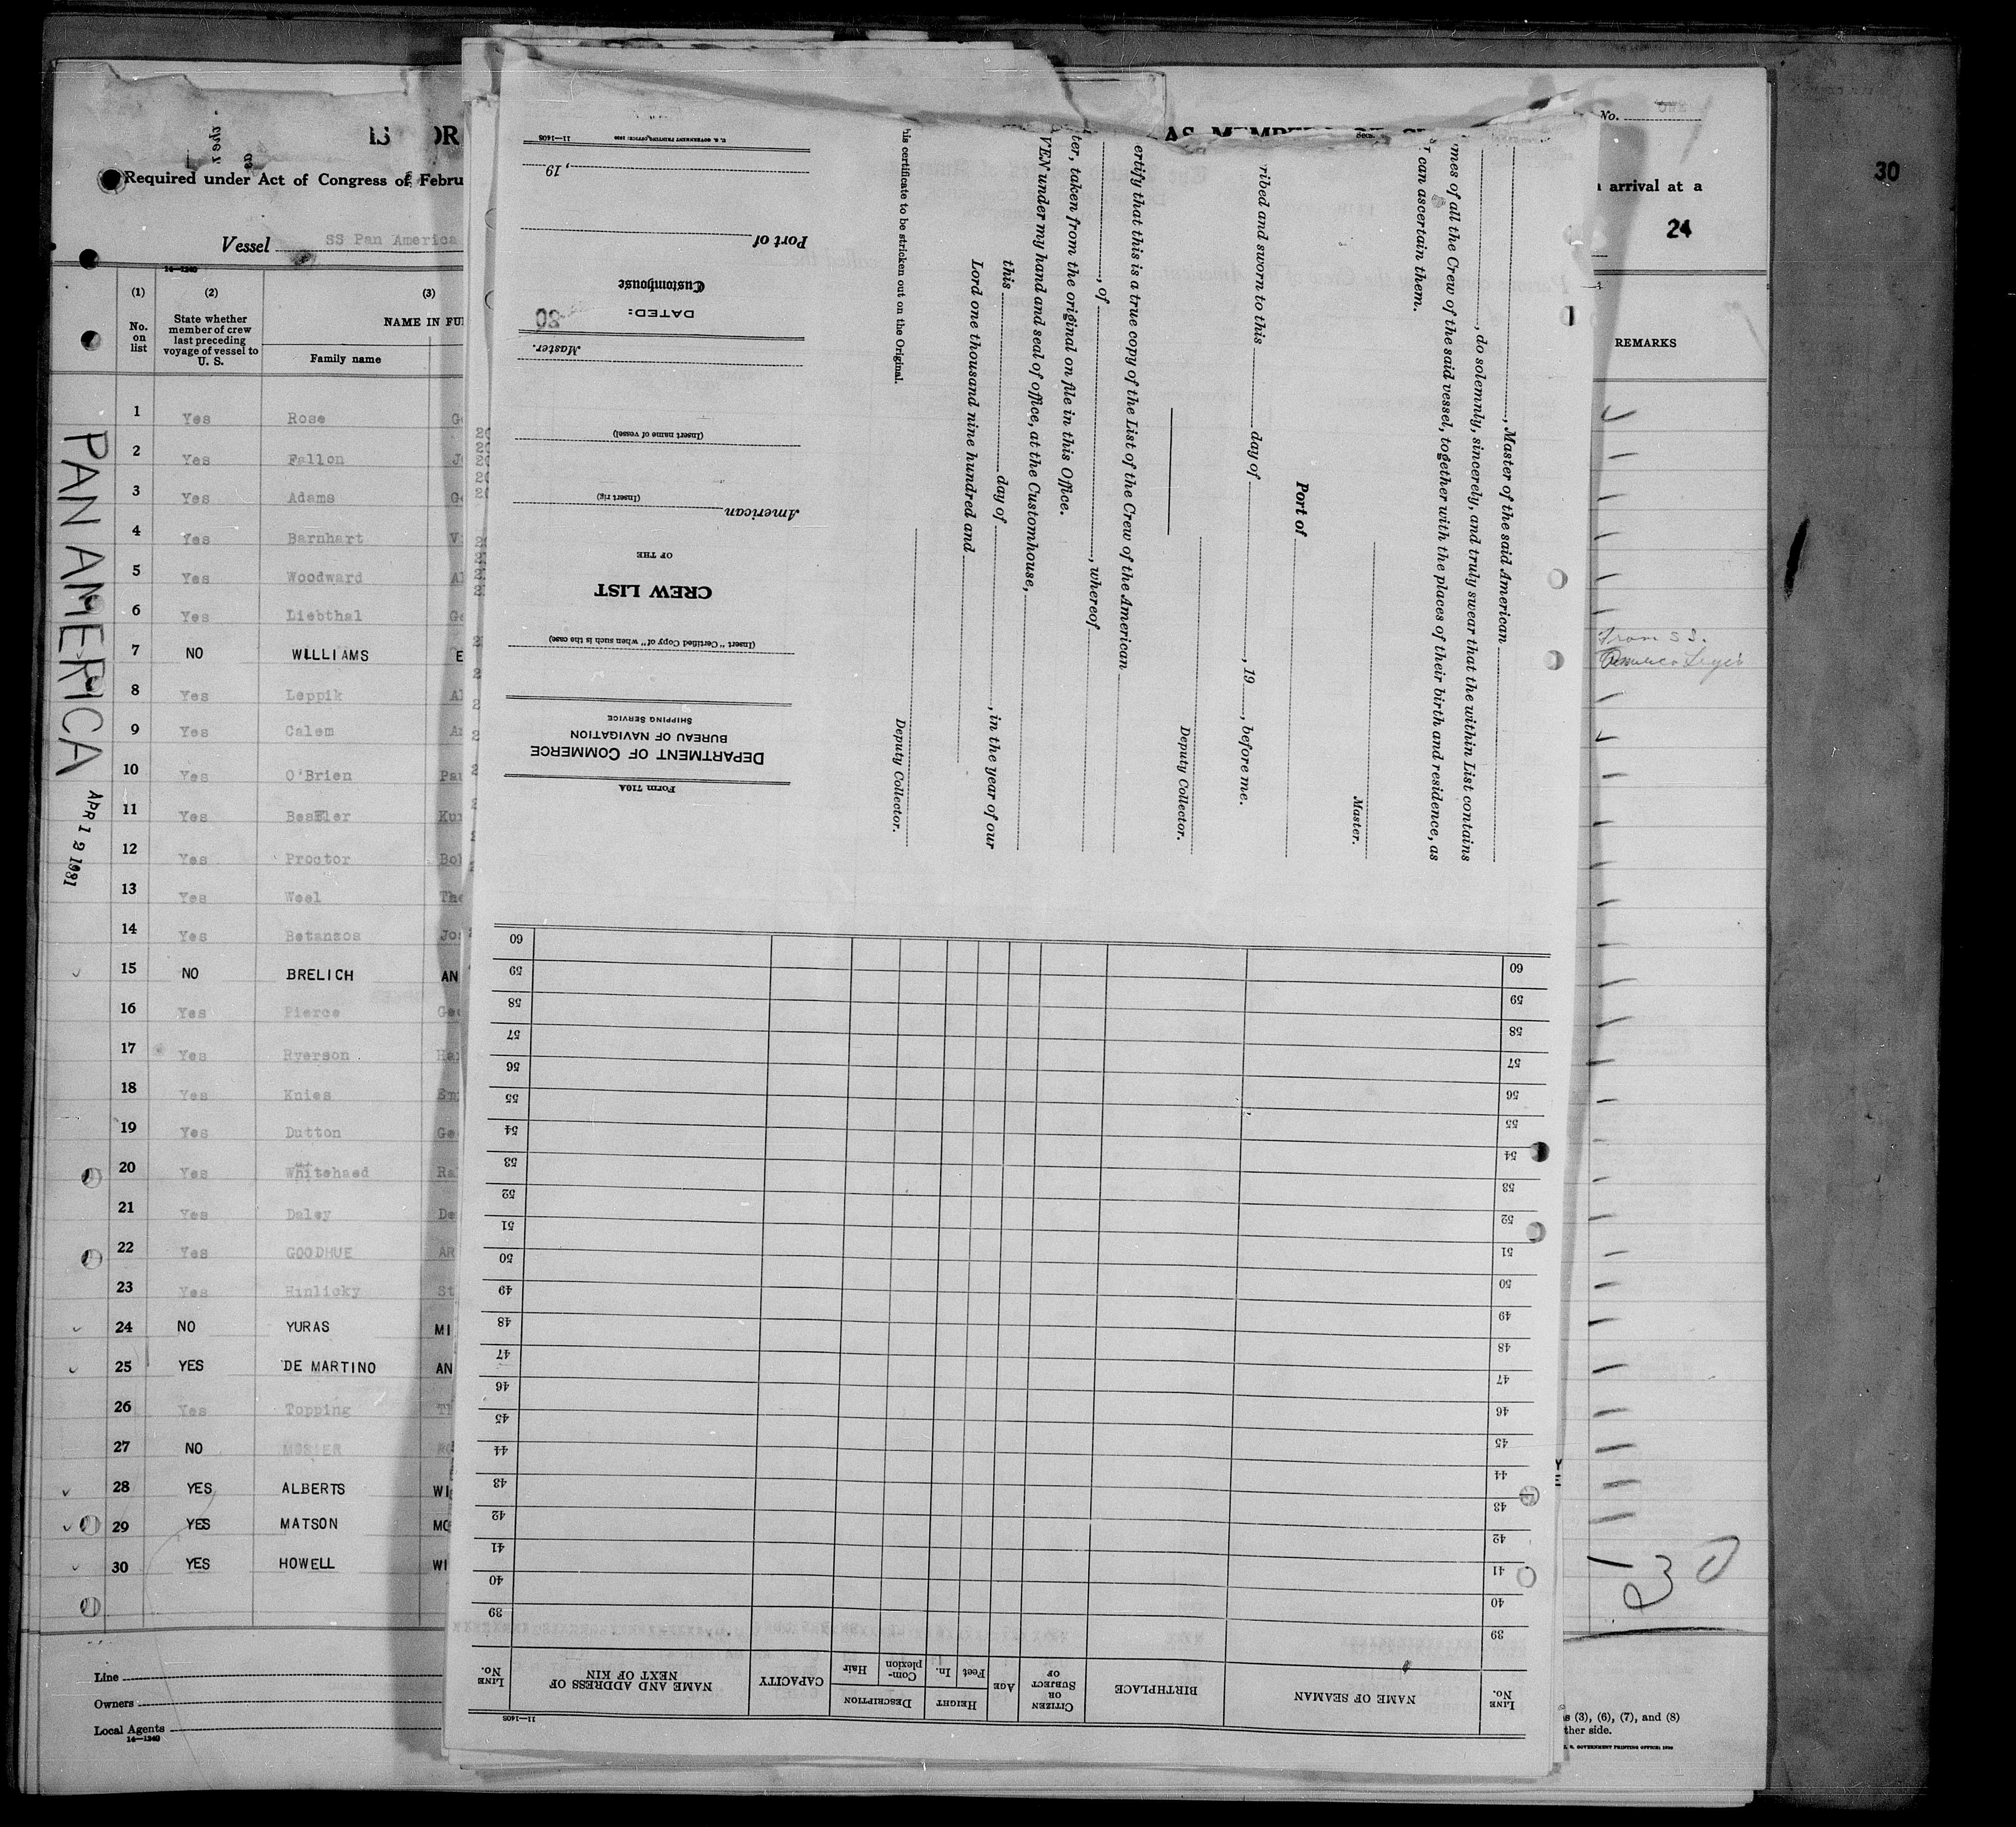 30
No.
Required under Act of Congress of Febru
arrival at a
24
Vessel SS Pan America
14—1240
(1) (2) (3)
No. on list
State whether member of crew last preceding voyage of vessel to U. S.
NAME IN FU
Family name
REMARKS
PAN AMERICA
APR 12 1931
1 Yes Rose
2 Yes Fallon
3 Yes Adams
4 Yes Barnhart
5 Yes Woodward
6 Yes Liebthal
7 NO WILLIAMS E
From SS.
America Legion
8 Yes Leppik
9 Yes Calem
10 Yes O'Brien
11 Yes
12 Yes Proctor
13 Yes Weel
14 Yes Betanzos
15 NO BRELICH AN
16 Yes Pierce
17 Yes Ryerson
18 Yes Knies
19 Yes Dutton
20 Yes Whitehaed
21 Yes Daley
22 Yes GOODHUE AR
23 Yes Hinlicky St
24 NO YURAS MI
25 YES DE MARTINO AN
26 Yes Topping
27 NO MOSIER
28 YES ALBERTS WI
29 YES MATSON MO
30 YES HOWELL WI
30
Line
Owners
Local Agents
14—1240
(3), (6), (7), and (8)
ther side.
U. S. GOVERNMENT PRINTING OFFICE: 1930
Form 710A
DEPARTMENT OF COMMERCE
BUREAU OF NAVIGATION
SHIPPING SERVICE
(Insert "Certified Copy of" when such is the case)
CREW LIST
OF THE
American
(Insert rig)
(Insert name of vessel)
Master.
DATED:
30
Customhouse
Port of
, 19
U. S. GOVERNMENT PRINTING OFFICE: 1930
11—1408
, Master of the said American
, do solemnly, sincerely, and truly swear that the within List contains
mes of all the Crew of the said vessel, together with the places of their birth and residence, as
can ascertain them.
Master.
Port of
ribed and sworn to this day of , 19 , before me.
Deputy Collector.
ertify that this is a true copy of the List of the Crew of the American
, of , whereof
ter, taken from the original on file in this Office.
VEN under my hand and seal of office, at the Customhouse,
this day of , in the year of our
Lord one thousand nine hundred and
Deputy Collector.
his certificate to be stricken out on the Original.
LINE No.
NAME OF SEAMAN
BIRTHPLACE
CITIZEN OR SUBJECT OF
AGE
HEIGHT
Feet In.
DESCRIPTION
Complexion Hair
CAPACITY
NAME AND ADDRESS OF NEXT OF KIN
LINE No.
11—1408
39 39
40 40
41 41
42 42
43 43
44 44
45 45
46 46
47 47
48 48
49 49
50 50
51 51
52 52
53 53
54 54
55 55
56 56
57 57
58 58
59 59
60 60